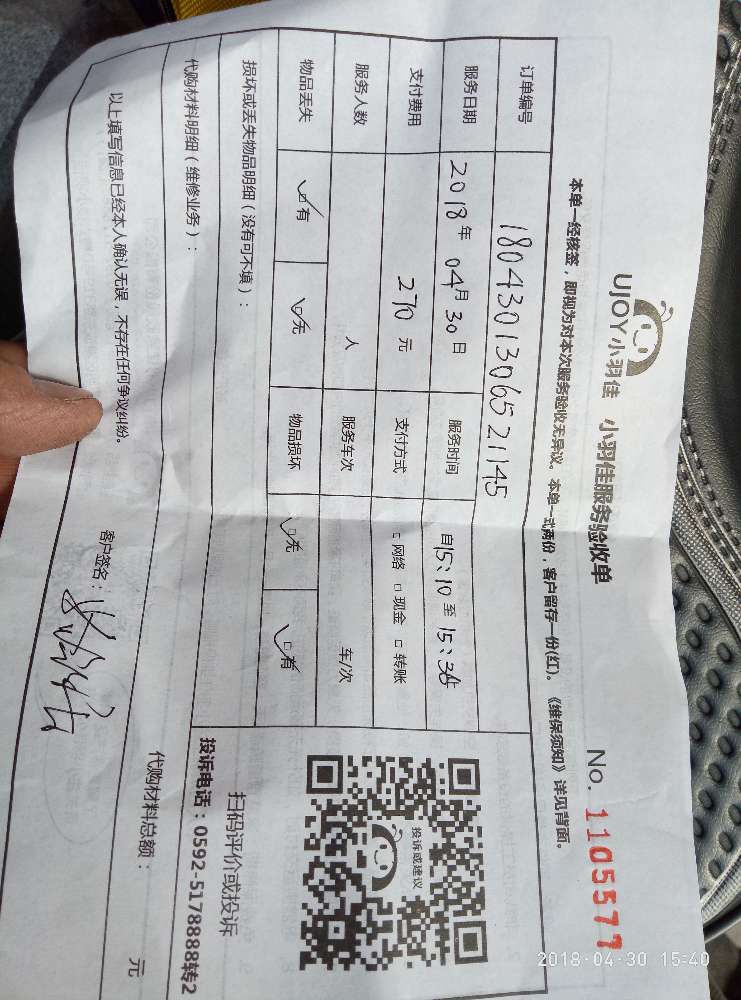 UJOY小羽佳 小羽佳服务验收单 No. 1105577
本单一经核签，即视为对本次服务验收无异议。本单一式两份，客户留存一份(红)。《维保须知》详见背面。
订单编号 18043013065 21145
服务日期 2018年 04月 30日 服务时间 自15:10至 15:36
支付费用 270 元 支付方式 □ 网络 □ 现金 □ 转账
服务人数 人 服务车次 车/次
物品丢失 □有 □无 物品损坏 □无 □有
损坏或丢失物品明细（没有可不填）：
投诉或建议
扫码评价或投诉
投诉电话：0592-5178888转2
代购材料明细（维修业务）：
代购材料总额： 元
以上填写信息已经本人确认无误，不存在任何争议纠纷。 客户签名：
2018-04-30 15:40